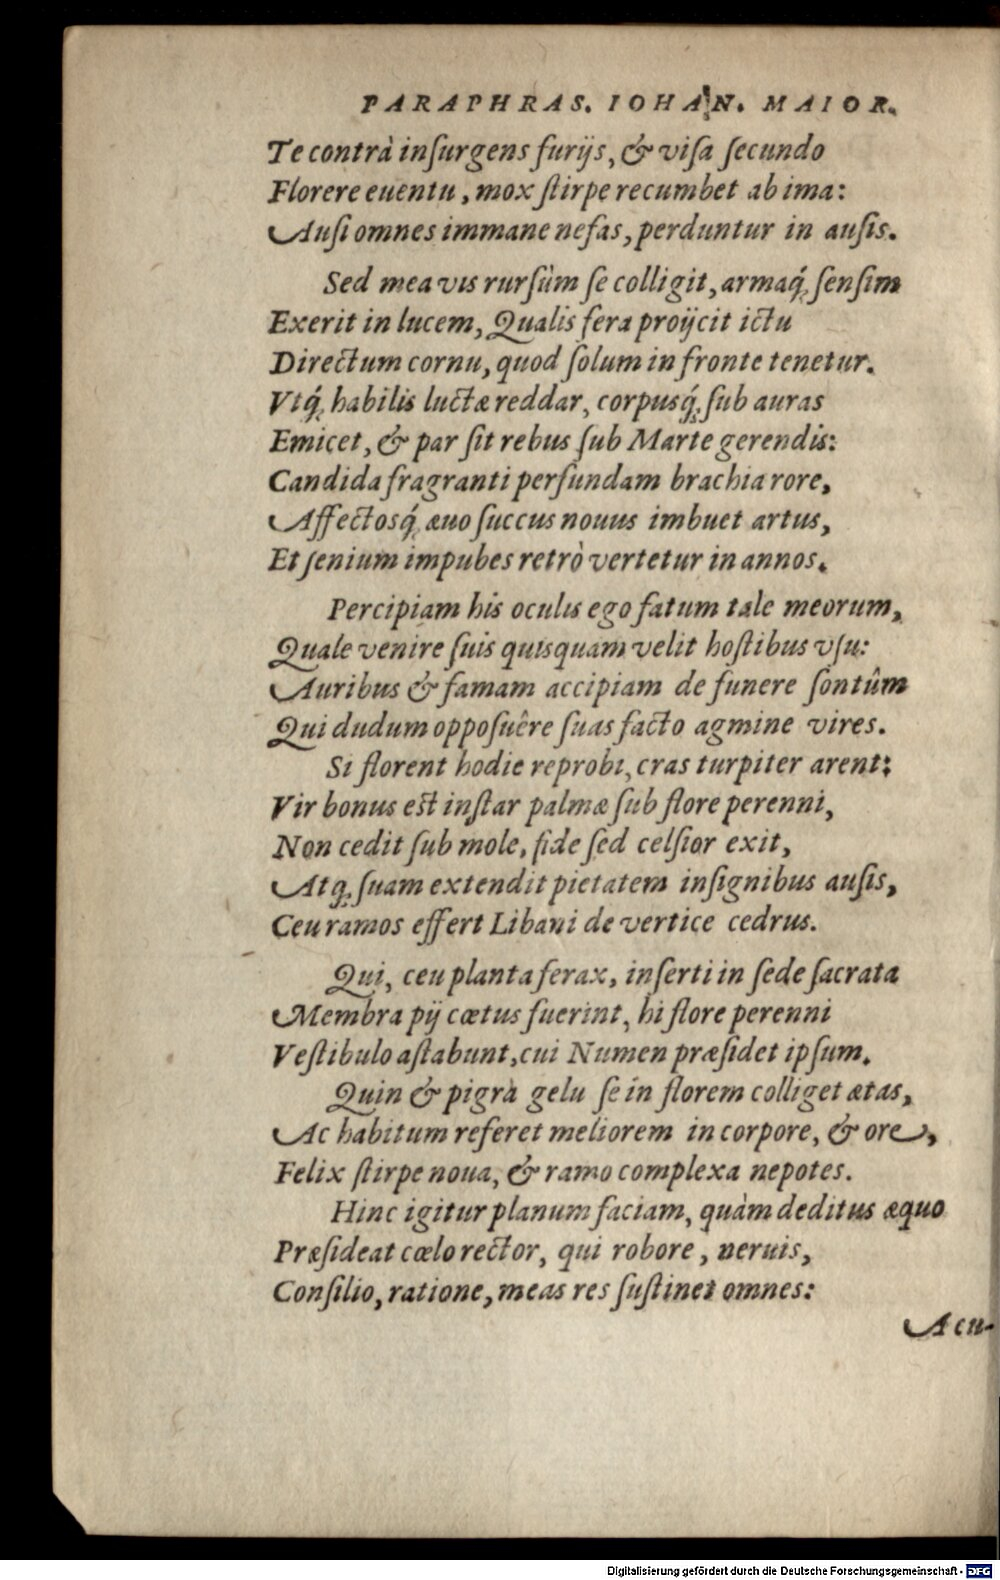 PARAPHRAS. IOHAN. MAIOR.
Te contrà inſurgens furijs, & viſa ſecundo
Florere euentu, mox ſtirpe recumbet ab ima:
Auſi omnes immane nefas, perduntur in auſis.
Sed mea vis rurſùm ſe colligit, armaq́; ſenſim
Exerit in lucem, Qualis fera proijcit ictu
Directum cornu, quod ſolum in fronte tenetur.
Vtq́; habilis luctæ reddar, corpusq́; ſub auras
Emicet, & par ſit rebus ſub Marte gerendis:
Candida fragranti perfundam brachia rore,
Affectosq́; æuo ſuccus nouus imbuet artus,
Et ſenium impubes retrò vertetur in annos.
Percipiam his oculis ego fatum tale meorum,
Quale venire ſuis quisquam velit hoſtibus vſu:
Auribus & famam accipiam de funere ſontûm
Qui dudum oppoſuêre ſuas facto agmine vires.
Si florent hodie reprobi, cras turpiter arent:
Vir bonus eſt inſtar palmæ ſub flore perenni,
Non cedit ſub mole, fide ſed celſior exit,
Atq; ſuam extendit pietatem inſignibus auſis,
Ceu ramos effert Libani de vertice cedrus.
Qui, ceu planta ferax, inſerti in ſede ſacrata
Membra pij cœtus fuerint, hi flore perenni
Veſtibulo aſtabunt, cui Numen præſidet ipſum.
Quin & pigra gelu ſe in florem colliget ætas,
Ac habitum referet meliorem in corpore, & ore,
Felix ſtirpe noua, & ramo complexa nepotes.
Hinc igitur planum faciam, quàm deditus æquo
Præſideat cœlo rector, qui robore, neruis,
Conſilio, ratione, meas res ſuſtinet omnes:
Acu-
Digitalisierung gefördert durch die Deutsche Forschungsgemeinschaft - DFG